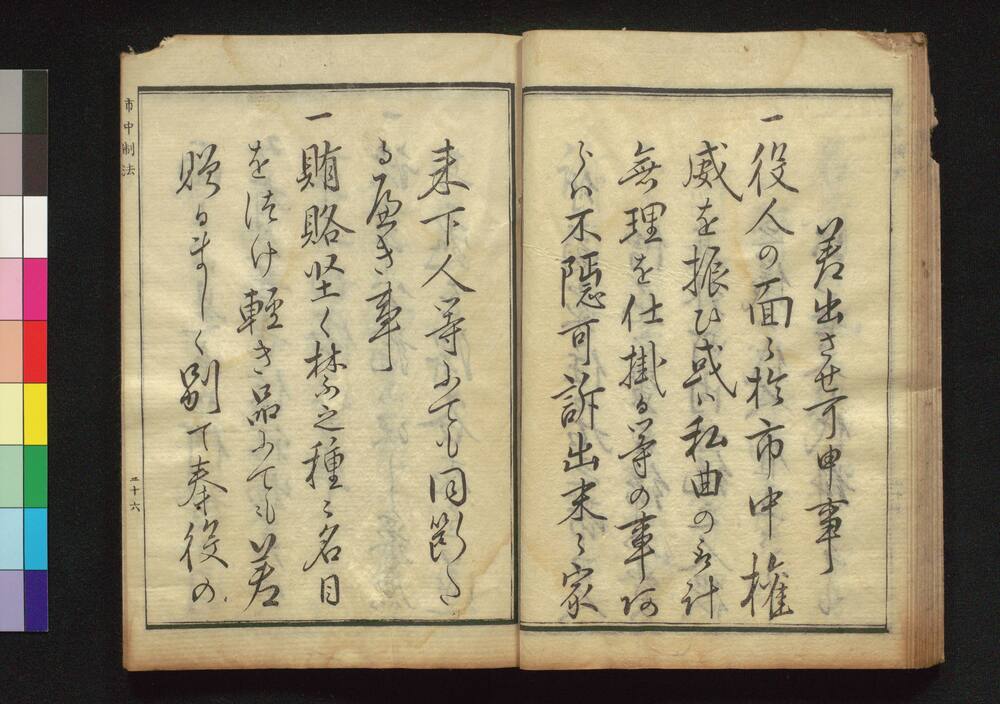 差出させ可申事
一役人の面々於市中権
威を振ひ或ハ私曲の取計
無理を仕掛る等の事阿
らハ不隠可訴出末々家
来下人等ニても同断た
る遍き事
一賄賂堅く禁之種々名目
を付け軽き品ニても差
贈るましく別て奉役の
市中制法
三十六